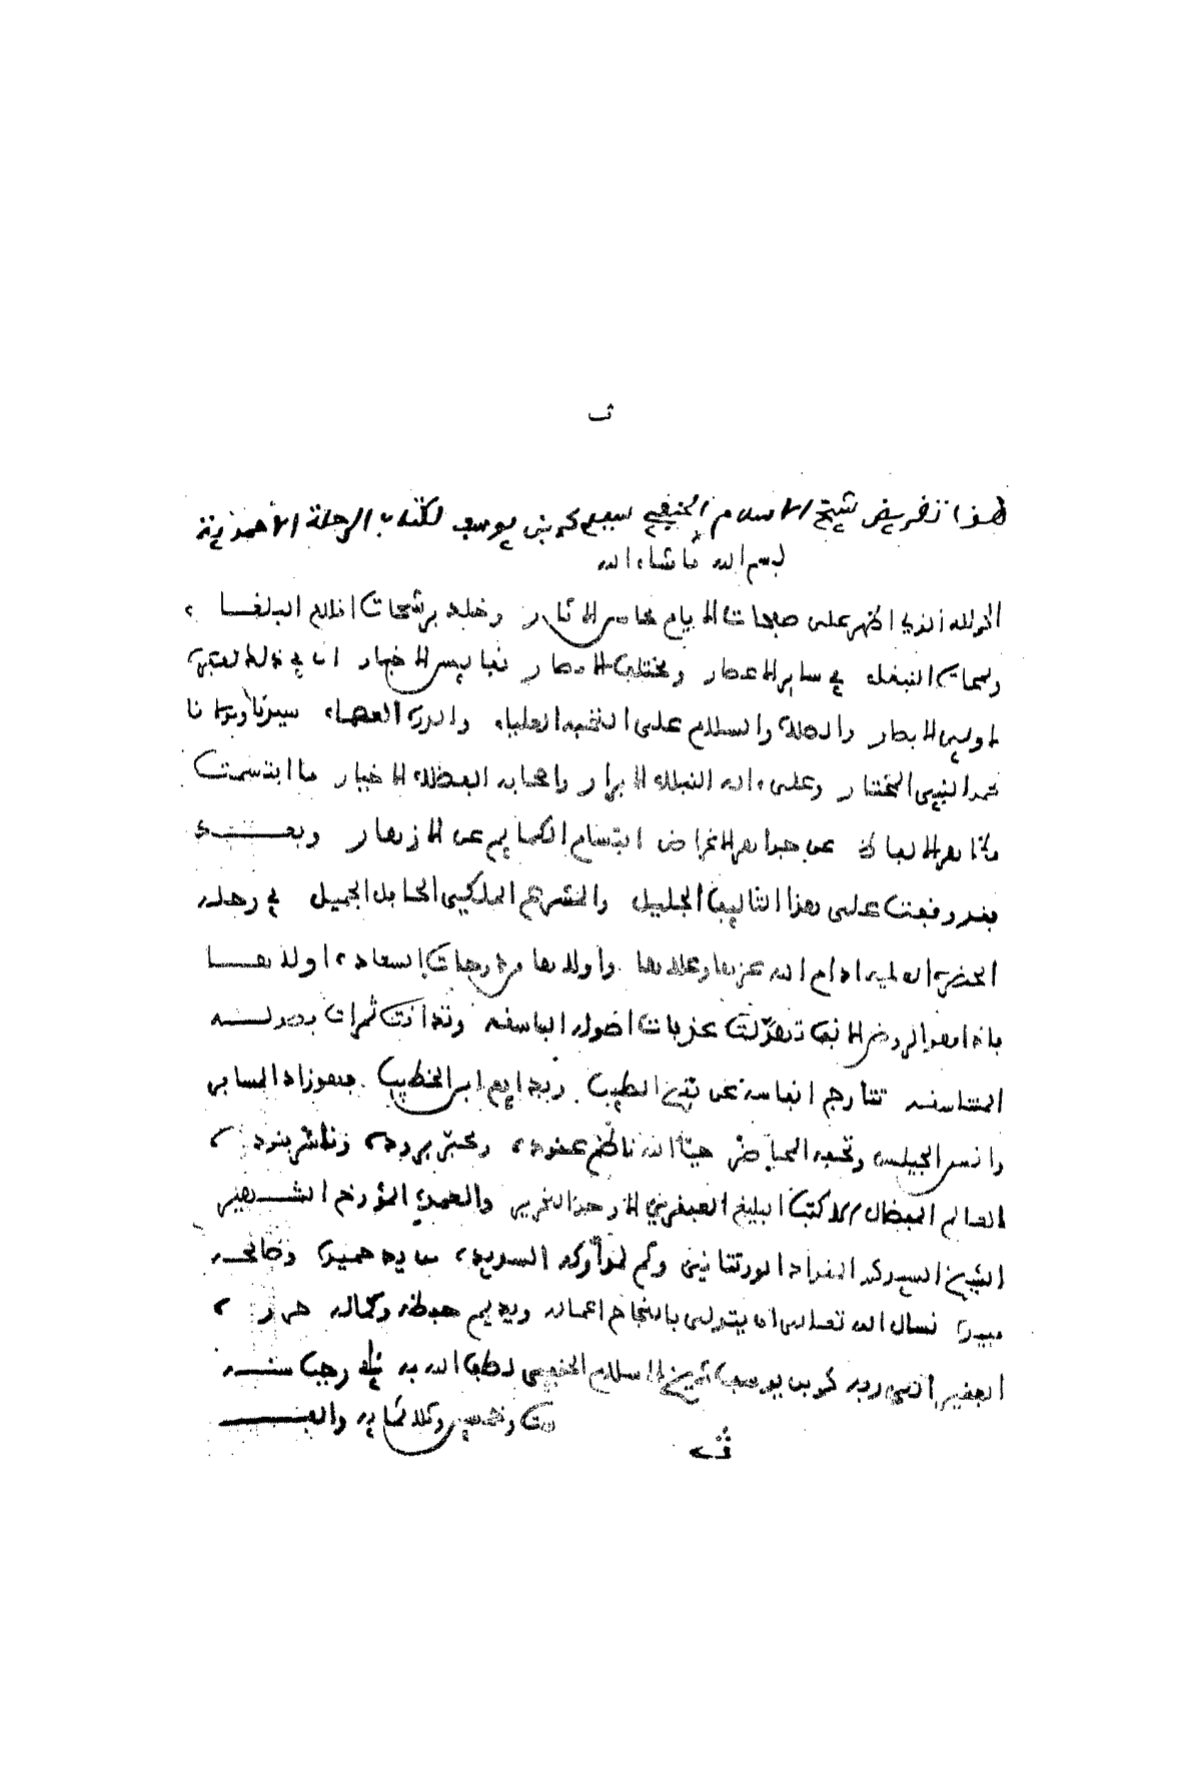 ث
هذا تقريض شيخ الاسلام الحنفي سيدي محمد بن يوسف لكتاب الرحلة الأحمدية
بسم الله ما شاء الله
الحمد لله الذي اظهر على صفحات الايام محاسن الاثار وخلد برشحات اقلام البلغاء
ونسمات النبغاء في ساير الاعصار ومختلف الامصار نفايس الاخبار ان في ذلك لعبرة
لاولي الابصار والصلاة والسلام على النخبة العلياء والدرة العصماء سيدنا ومولانا
محمد النبيي المختار وعلى ءاله النبلاء الابرار واصحابه العظلاء الاخيار ما ابتسمت
عن الاغراض ابتسام الكمايم عن الازهار وبعد
فقد وقفت على هذا التاليف الجليل والنشر الملكيي الحافل الجميل في رحلة
الحضرة العلية ادام الله عزها وعلاها واولاها من درجات السعادة اولاها
فاذا هو الروض الانف تهدلت عذبات اصوله الباسقة وتدانت ثمرات فصوله
المتناسقة تتارج انفاسه عن نفح الطيب وبدايع ابن الخطيب فهو زاد المسافر
وانس الجليس وتحفة المحاضر حيا الله ناظم عقوده ومحبر بروده وناشر بنوده
العالم المفضال الاكتب البليغ العبقري الاوحد النحرير والعمدة المؤرخ الشهير
الشيخ السيد محمد المقداد الورتتاني وكم لمولاه السويدة حميدة
نسال الله تعالى ان يتولى بالنجاح اعماله ويديم حفظه وكماله حرره
الفقير الى ربه محمد بن يوسف شيخ الاسلام الحنفي لطف الله به في رجب سنة
ست وخمسين وثلاثماية والف